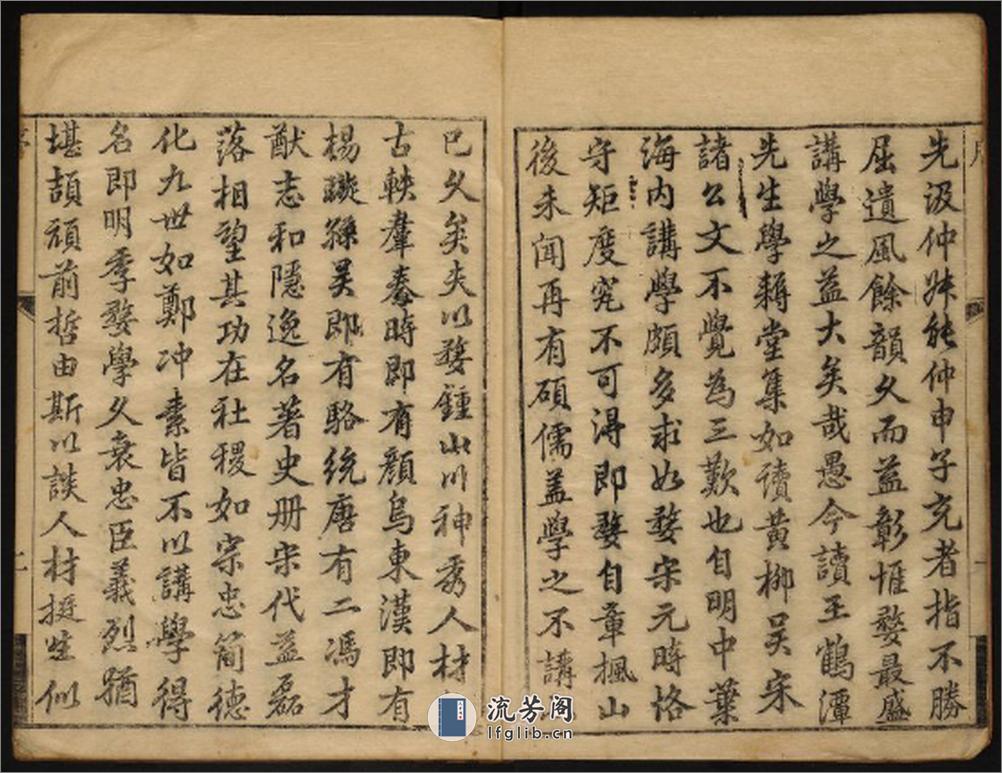 先汲仲妹能仲申子充者指不勝
屈遺風餘韻久而益彰惟婺最盛
講學之益大矣哉愚今讀王鶴潭
先生學耨堂集如讀黃柳吴宋
諸公文不覺為三歎也自明中葉
海内講學頗多求如婺宋元時恪
守矩度究不可得即婺自章楓山
後未聞再有碩儒盖學之不講
已久矣夫以婺鍾山川神秀人材
古軼羣秦時即有顏烏東漢即有
楊璇孫吴即有駱統唐有二馮才
猷志和隱逸名著史册宋代益磊
落相望其功在社稷如宗忠簡德
化九世如鄭冲素皆不以講學得
名即明季婺學久衰忠臣義烈猶
堪頡頏前哲由斯以談人材挺生似
序
流芳阁
lfglib.cn